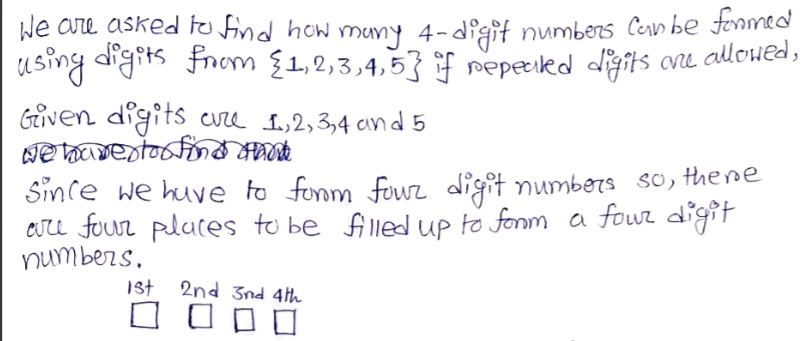 We are asked to find how many 4-digit numbers can be formed
using digits from {1,2,3,4,5} if repeated digits are allowed,
Given digits are 1,2,3,4 and 5
Since we have to form four digit numbers so, there
are four places to be filled up to form a four digit
numbers.
1st 2nd 3rd 4th